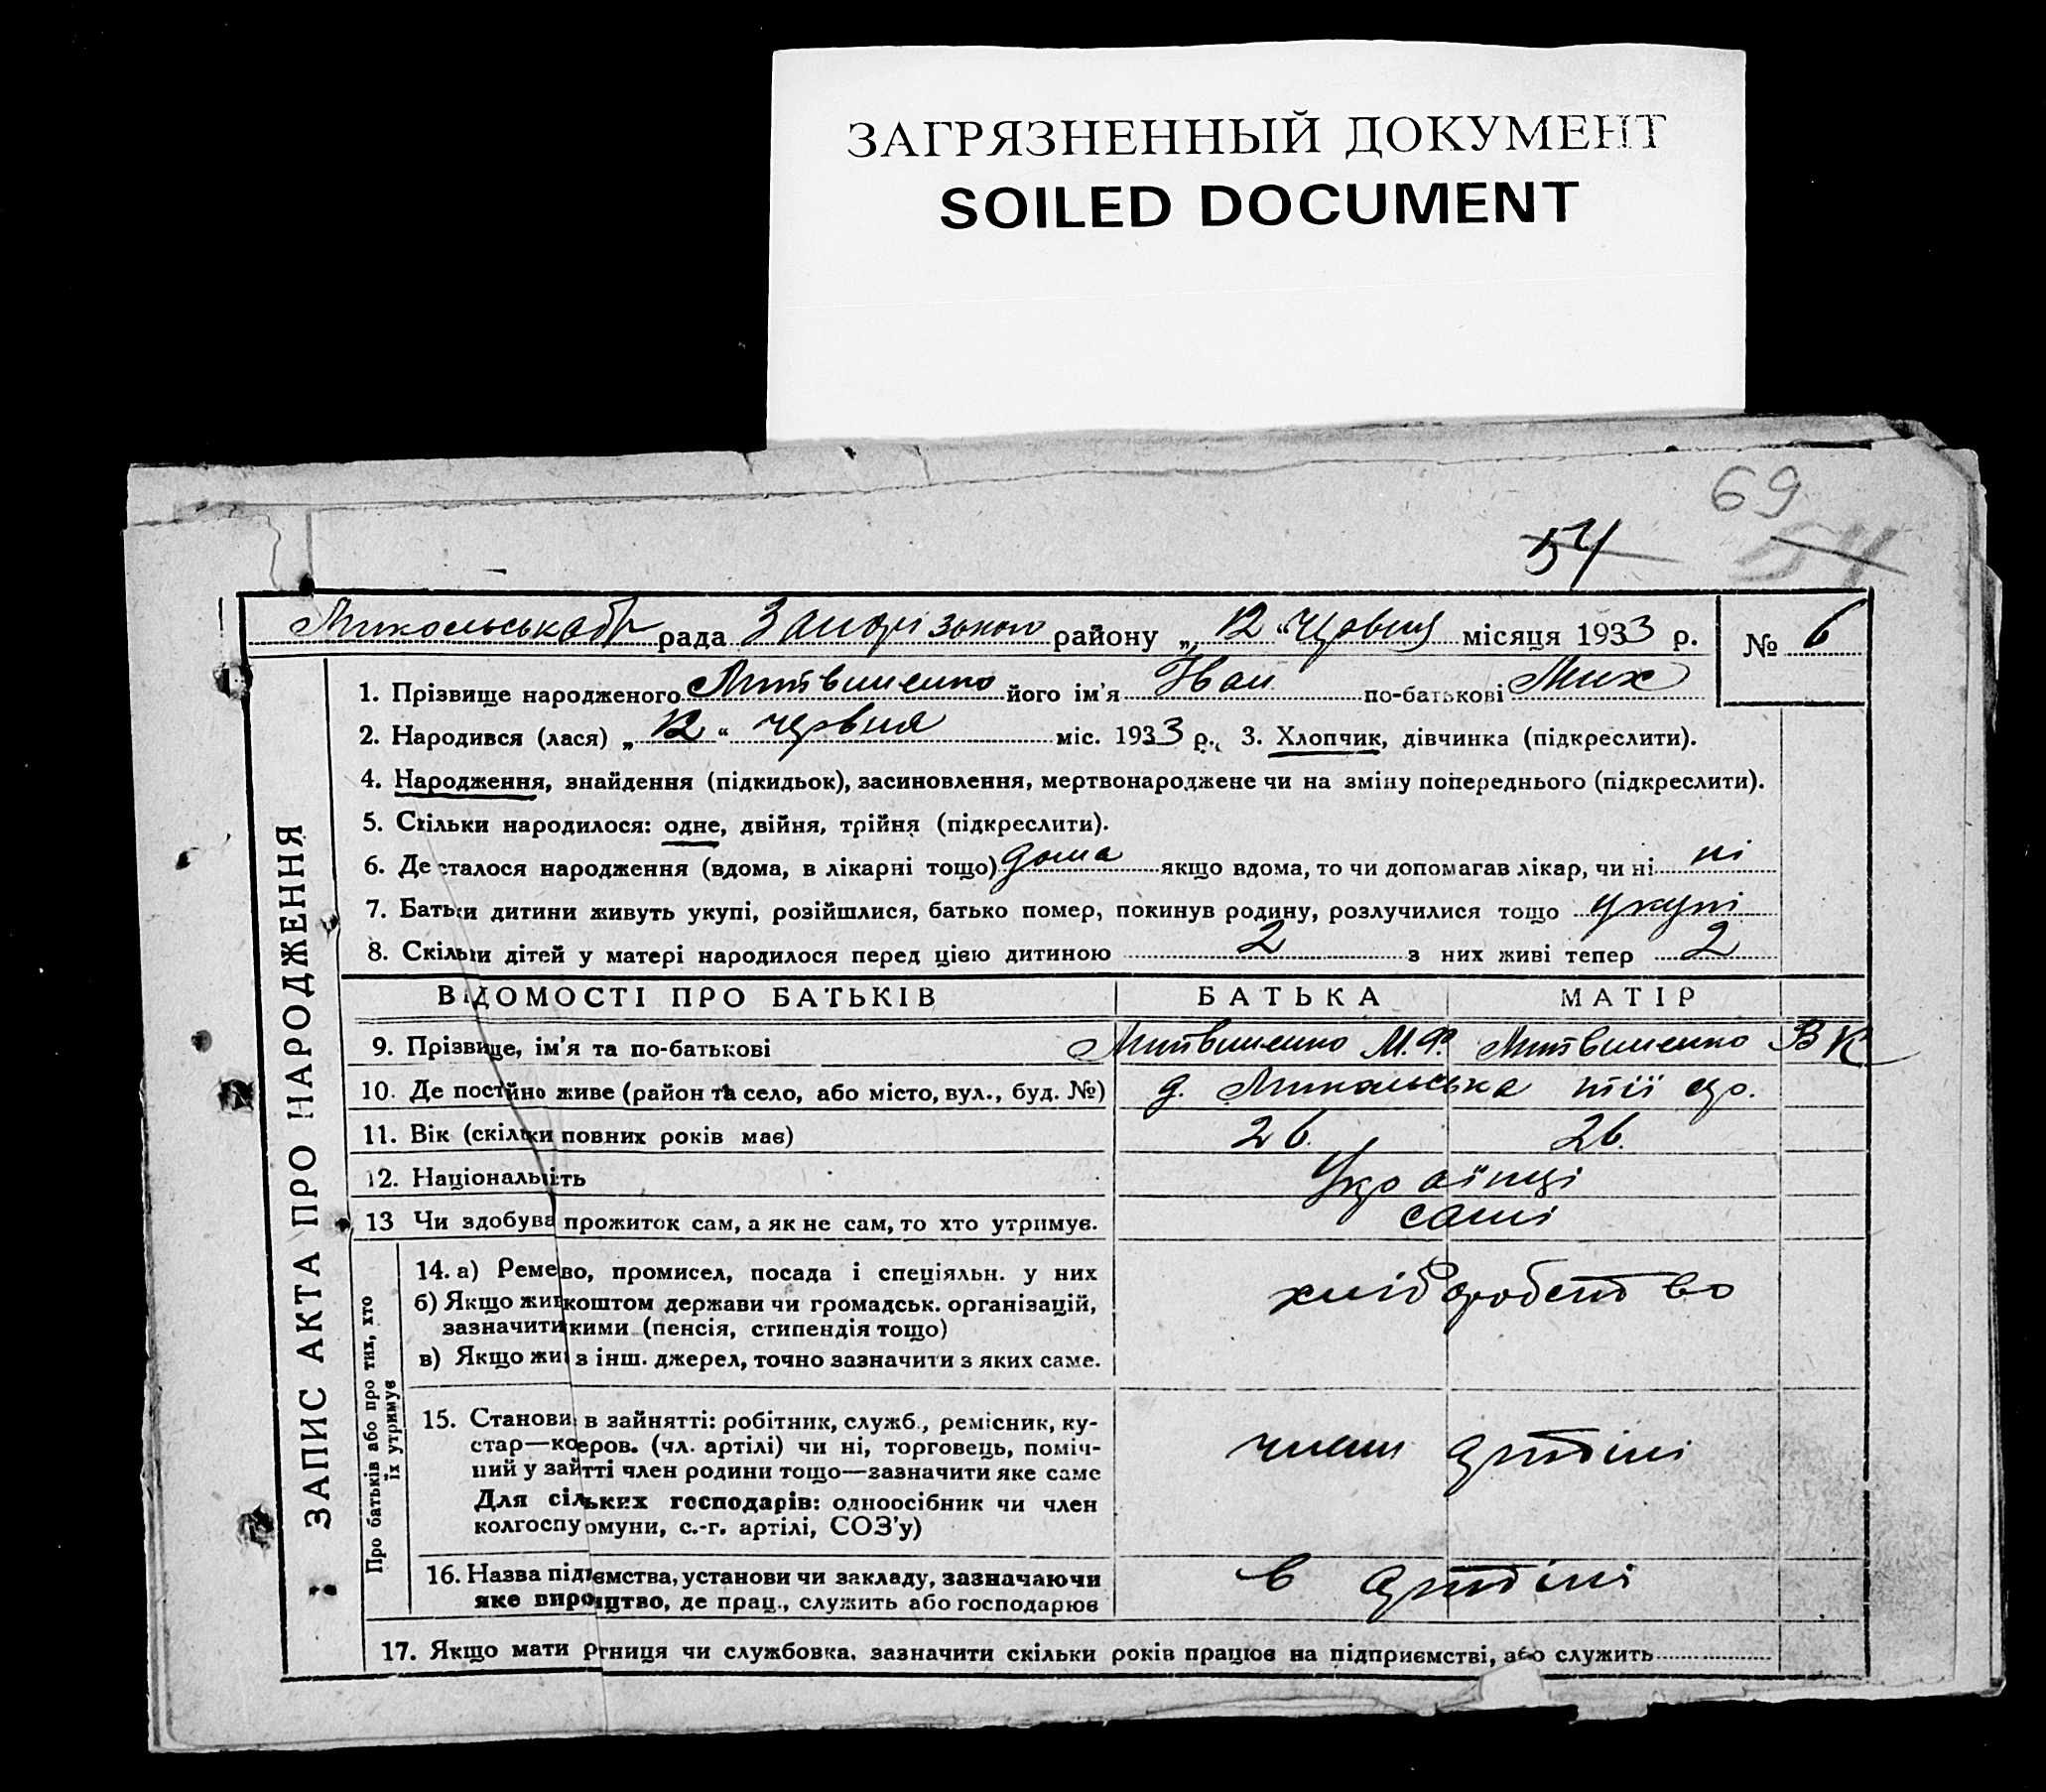 ЗАГРЯЗНЕННЫЙ ДОКУМЕНТ
SOILED DOCUMENT
69
54 54
рада району „ 12 “ червня місяця 1933 р. № 6
1. Прізвище народженого Литвиненко його ім'я Іван по-батькові Мих
2. Народився (лася) „ 12 “ червня міс. 1933 р., 3. Хлопчик, дівчинка (підкреслити).
4. Народження, знайдення (підкидьок), засиновлення, мертвонароджене чи на зміну попереднього (підкреслити).
5. Скільки народилося: одне, двійня, трійня (підкреслити).
6. Де сталося народження (вдома, в лікарні тощо) дома якщо вдома, то чи допомагав лікар, чи ні ні
7. Батьки дитини живуть укупі, розійшлися, батько помер, покинув родину, розлучилися тощо укупі
8. Скільки дітей у матері народилося перед цією дитиною 2 з них живі тепер 2
ЗАПИС АКТА ПРО НАРОДЖЕННЯ
ВІДОМОСТІ ПРО БАТЬКІВ БАТЬКА МАТІР
9. Прізвище, ім'я та по-батькові Литвиненко М.Ф. Литвиненко В К
10. Де постійно живе (район та село, або місто, вул., буд. №) д. Микольська
11. Вік (скільки повних років має) 26. 26.
12. Національність Українці
13 Чи здобува прожиток сам, а як не сам, то хто утримує. сами
Про батьків або про тих, хто
їх утримує
14. а) Ремево, промисел, посада і спеціяльн. у них хліборобство
б) Якщо жив коштом держави чи громадськ. організацій,
зазначити кими (пенсія, стипендія тощо)
в) Якщо жи з інш. джерел, точно зазначити з яких саме.
15. Станови в зайнятті: робітник, служб., ремісник, ку-
стар—коеров. (чл. артілі) чи ні, торговець, поміч-
ний у зайтті член родини тощо—зазначити яке саме члени артілі
Для сільких господарів: одноосібник чи член
колгоспу омуни, с.-г. артілі, СОЗ'у)
16. Назва підємства, установи чи закладу, зазначаючи в артілі
яке вироицтво, де прац., служить або господарює
17. Якщо мати ртниця чи службовка, зазначити скільки років працює на підприємстві, або служить